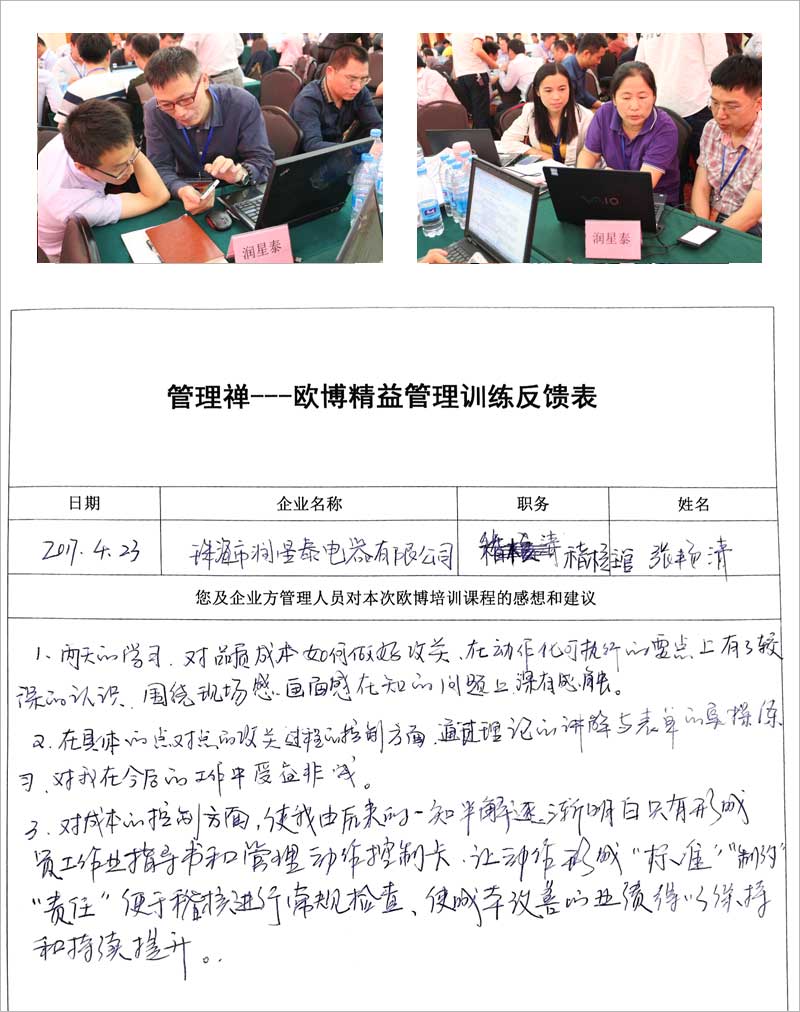 润星泰
VAIO
润星泰
管理禅---欧博精益管理训练反馈表
日期 企业名称 职务 姓名
2017.4.23 珠海市润星泰电器有限公司 稽核官 张杨清
您及企业方管理人员对本次欧博培训课程的感想和建议
1、两天的学习、对品质成本如何做好攻关、在动作化可执行的要点上有了较
深的认识、围绕现场感、画面感在知的问题上深有感触。
2、在具体的点对点的攻关过程的控制方面、通过理论的讲解与表单的实操练
习、对我在今后的工作中受益非浅。
3、对成本的控制方面，使我由原来的一知半解逐渐明白只有形成
员工作业指导书和管理动作控制卡、让动作形成“标准”“制约”
“责任”便于稽核进行常规检查、使成本改善的业绩得以保持
和持续提升。